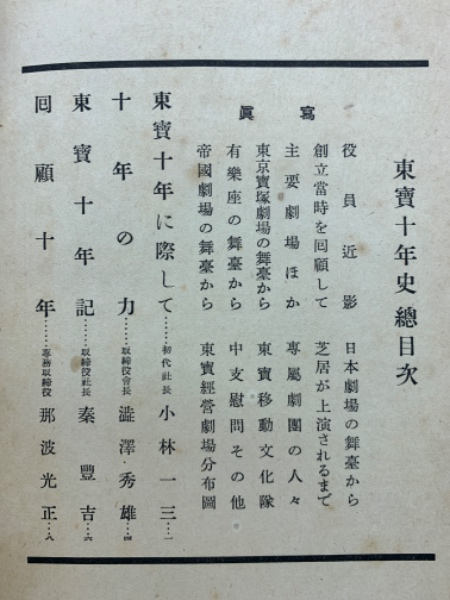 東寶十年史總目次
寫眞
役員近影
日本劇場の舞臺から
創立當時を囘顧して
芝居が上演されるまで
主要劇場ほか
專屬劇團の人々
東京寶塚劇場の舞臺から
東寶移動文化隊
有樂座の舞臺から
中支慰問その他
帝國劇場の舞臺から
東寶經營劇場分布圖
東寶十年に際して……初代社長 小林一三…一
十年の力……取締役會長 澁澤秀雄…四
東寶十年記……取締役社長 秦豐吉…六
囘顧十年……專務取締役 那波光正…八